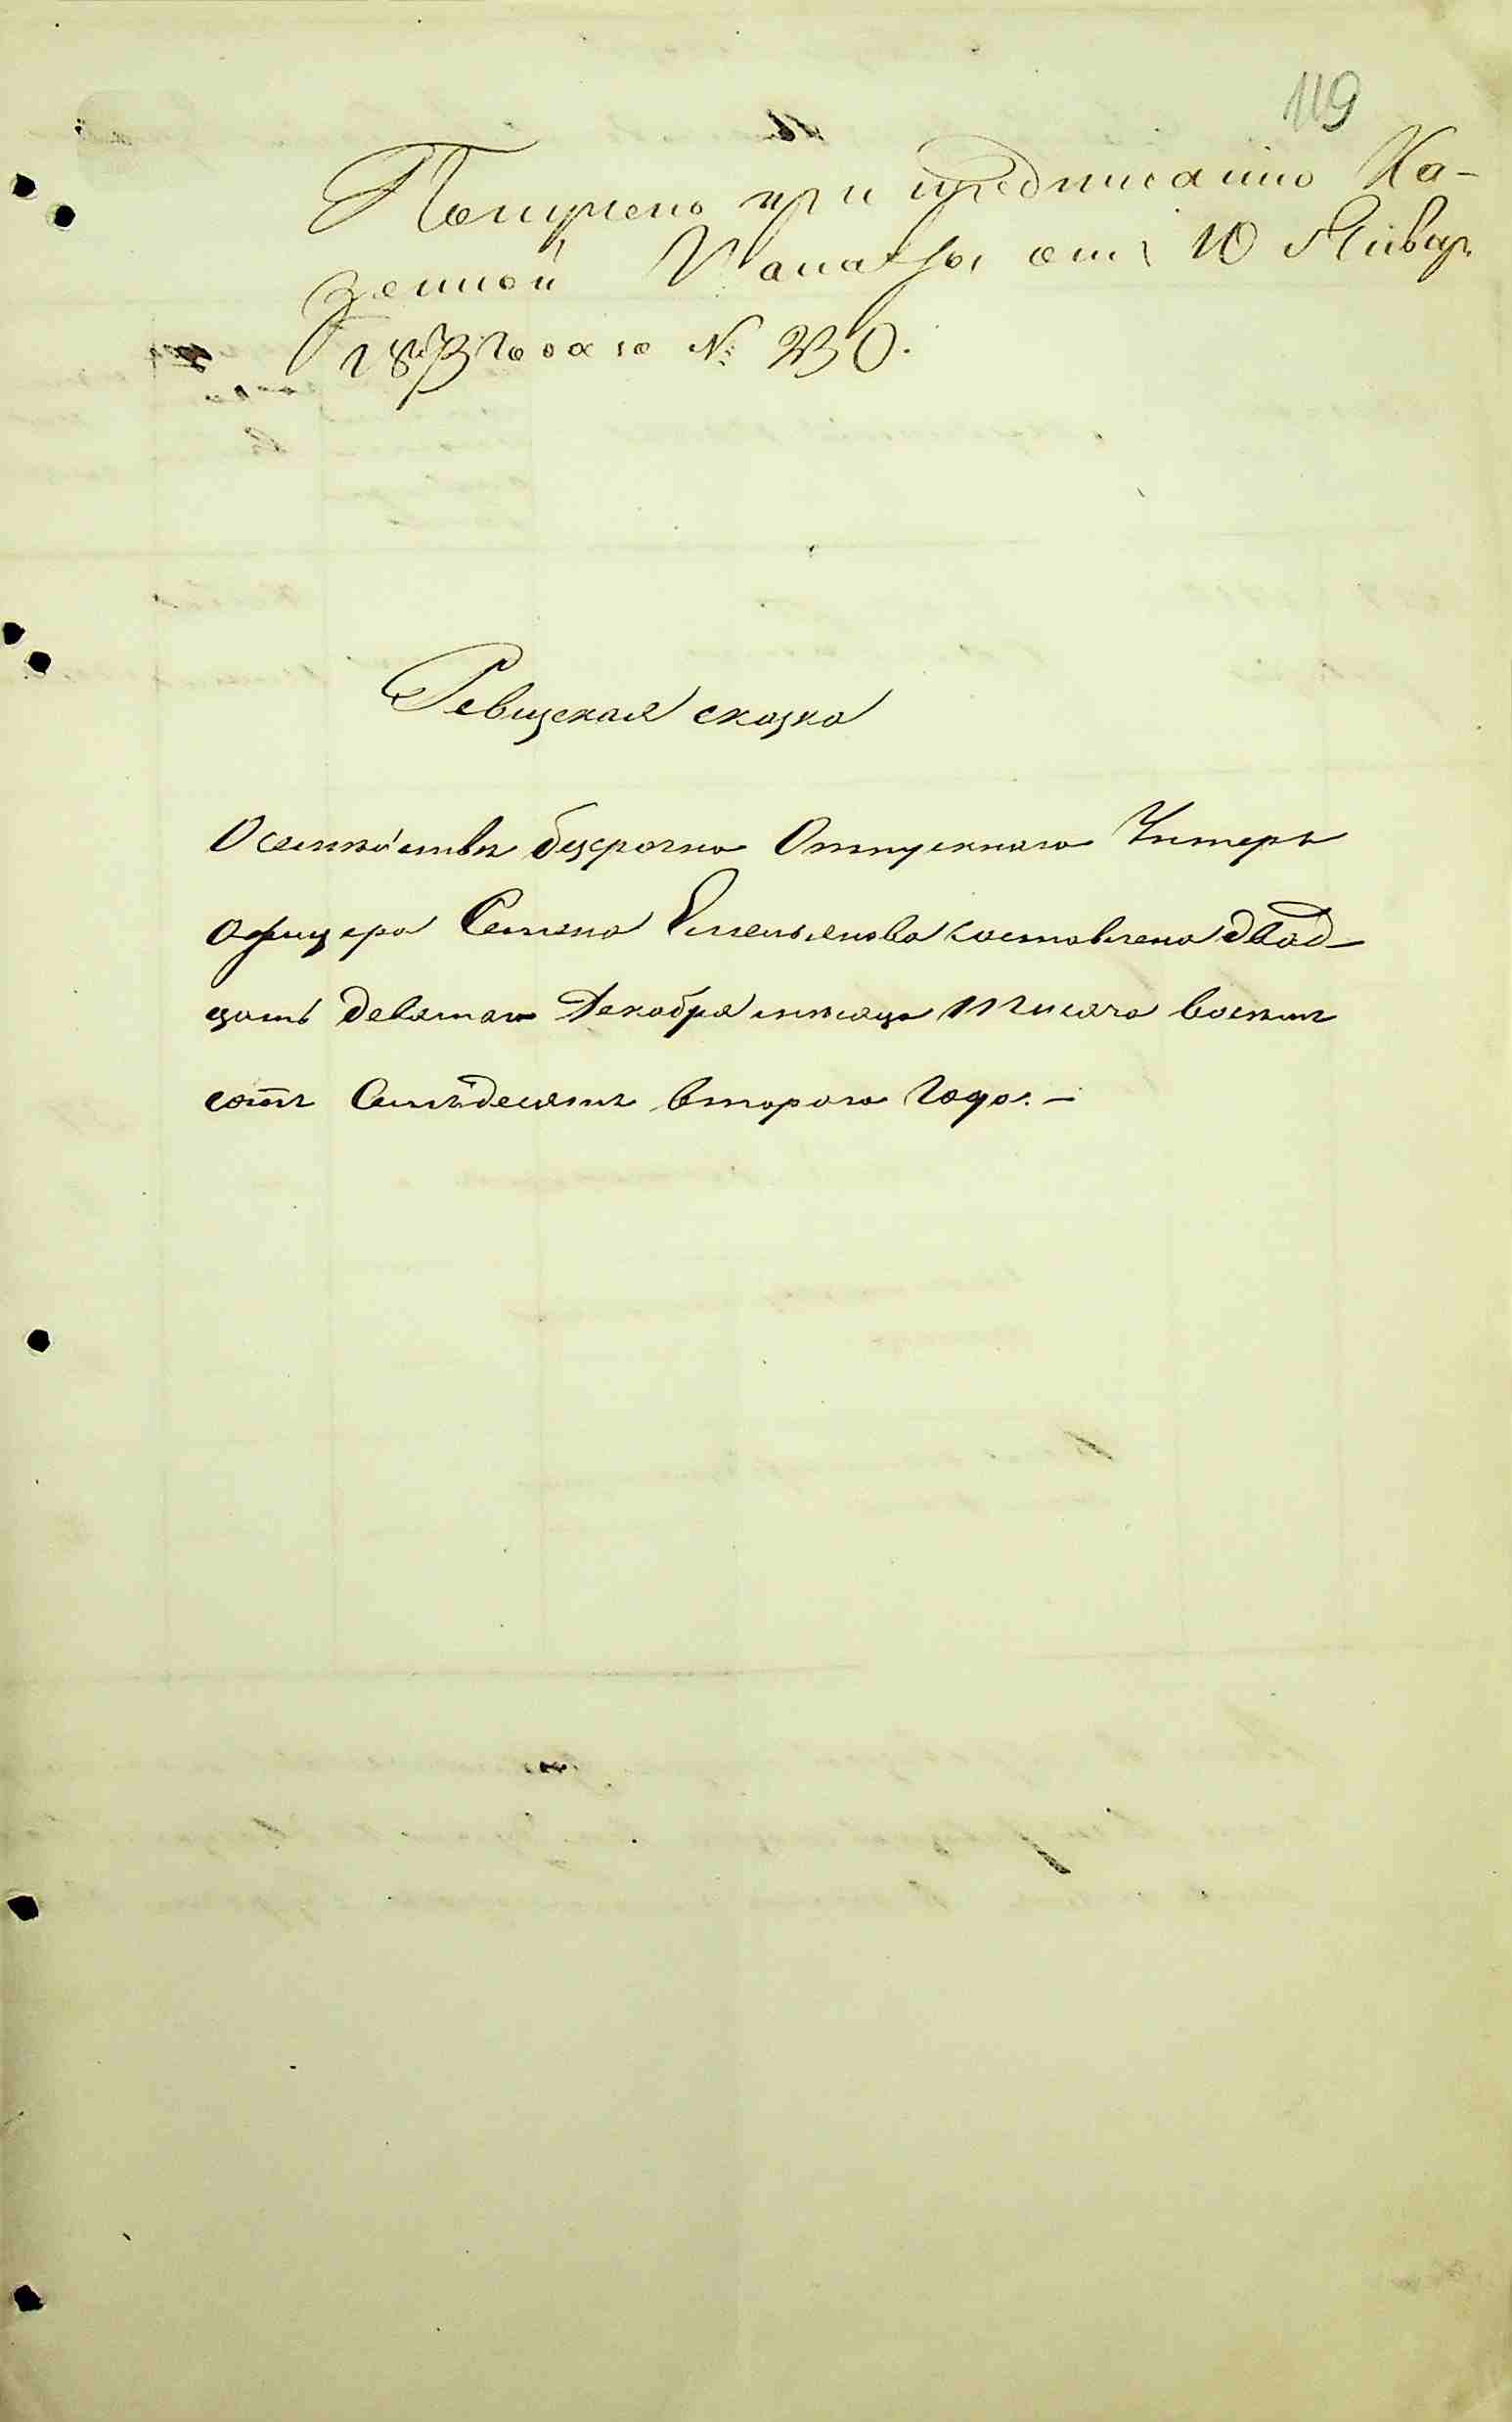 119
Получено при предписанiю Ка-
зенной Палаты от 10 Январ.
1873 года за № 230.
Ревизская сказка
О семействе безсрочно Отпускнаго Унтеръ
офицера Семена Емельянова составлена двад-
цать девятаго Декабря месяца тысяча восемь
сотъ Семьдесятъ втораго Года. —